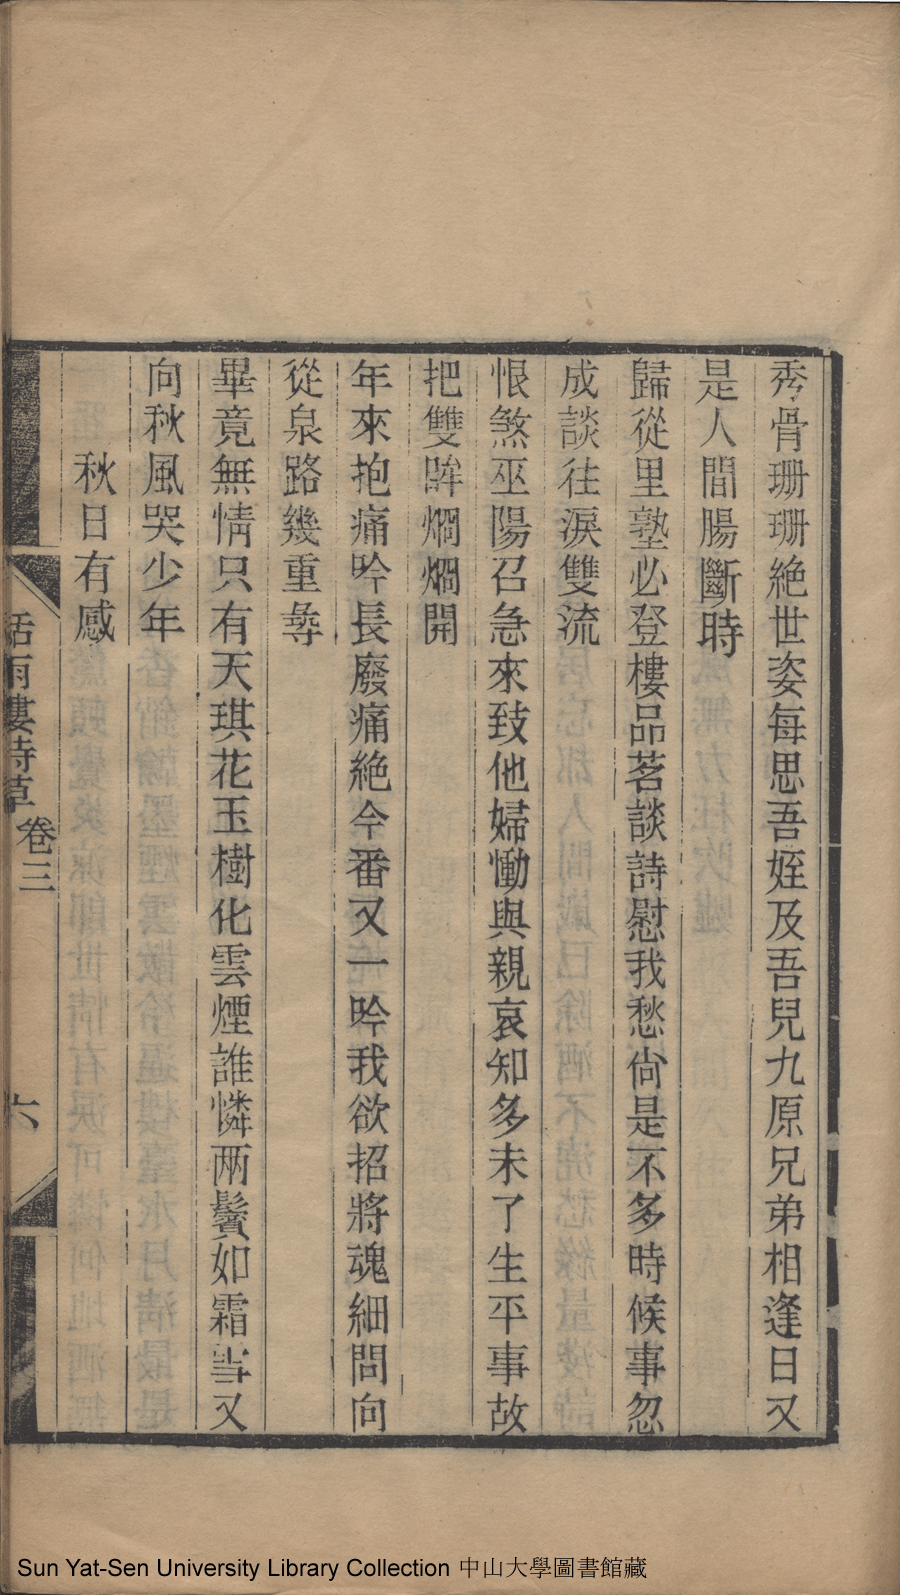 秀骨珊珊絕世姿每思吾姪及吾兒九原兄弟相逢日又
是人間腸斷時
歸從里塾必登樓品茗談詩慰我愁尙是不多時候事忽
成談往淚雙流
恨煞巫陽召急來致他婦慟與親哀知多未了生平事故
把雙眸烱烱開
年來抱痛吟長廢痛絕今番又一吟我欲招將魂細問向
從泉路幾重尋
畢竟無情只有天琪花玉樹化雲煙誰憐兩鬢如霜雪又
向秋風哭少年
秋日有感
話雨樓詩草
卷三
六
Sun Yat-Sen University Library Collection 中山大學圖書館藏